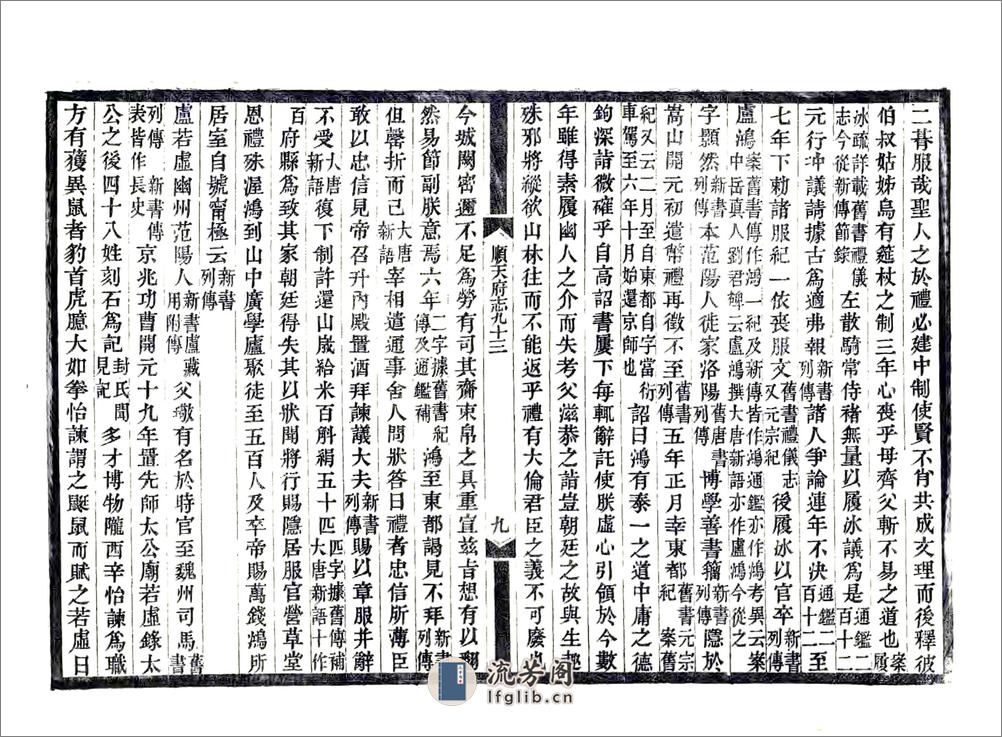 二朞服哉聖人之於禮必建中制使賢不肖共成文理而後釋彼
伯叔姑姊烏有筵杖之制三年心喪乎母齊父斬不易之道也案履
冰疏詳載舊書禮儀志今從新傳節錄左散騎常侍褚無量以履冰議爲是通鑑二百十二
元行冲議請據古爲適弗報新書列傳諸人爭論連年不決通鑑二百十二至
七年下勅諸服紀一依喪服文舊書禮儀志又元宗紀後履冰以官卒新書列傳
盧鴻案舊書傳作鴻一紀及新傳皆作鴻通鑑亦作鴻考異云案中岳真人劉君碑云盧鴻撰大唐新語亦作盧鴻今從之
字顥然新書列傳本范陽人徙家洛陽舊唐書列傳博學善書籀新書列傳隱於
嵩山開元初遣幣禮再徵不至舊書列傳五年正月幸東都舊書元宗紀案舊
紀又云二月至自東都自字當衍車駕至六年十月始還京師也詔曰鴻有泰一之道中庸之德
鉤深詣微確乎自高詔書屢下每輒辭託使朕虛心引領於今數
年雖得素履幽人之介而失考父滋恭之誼豈朝廷之故與生趣
殊邪將縱欲山林往而不能返乎禮有大倫君臣之義不可廢也
順天府志九十三
九
今城闕密邇不足爲勞有司其齎束帛之具重宣茲旨想有以翻
然易節副朕意焉六年二字據舊書紀傳及通鑑補鴻至東都謁見不拜新書列傳
但磬折而已大唐新語宰相遣通事舍人問狀答曰禮者忠信所薄臣
敢以忠信見帝召升內殿置酒拜諫議大夫新書列傳賜以章服并辭
不受大唐新語復下制許還山歲給米百斛絹五十匹四字據舊傳補大唐新語十作
百府縣爲致其家朝廷得失其以狀聞將行賜隱居服官營草堂
恩禮殊渥鴻到山中廣學廬聚徒至五百人及卒帝賜萬錢鴻所
居室自號甯極云新書列傳
盧若虛幽州范陽人新書盧藏用附傳父璥有名於時官至魏州司馬舊書
列傳新書傳表皆作長史京兆功曹開元十九年置先師太公廟若虛錄太
公之後四十八姓刻石爲記封氏聞見記多才博物隴西辛怡諫爲職
方有獲異鼠者豹首虎臆大如拳怡諫謂之鼮鼠而賦之若虛曰
流芳閣
lfglib.cn